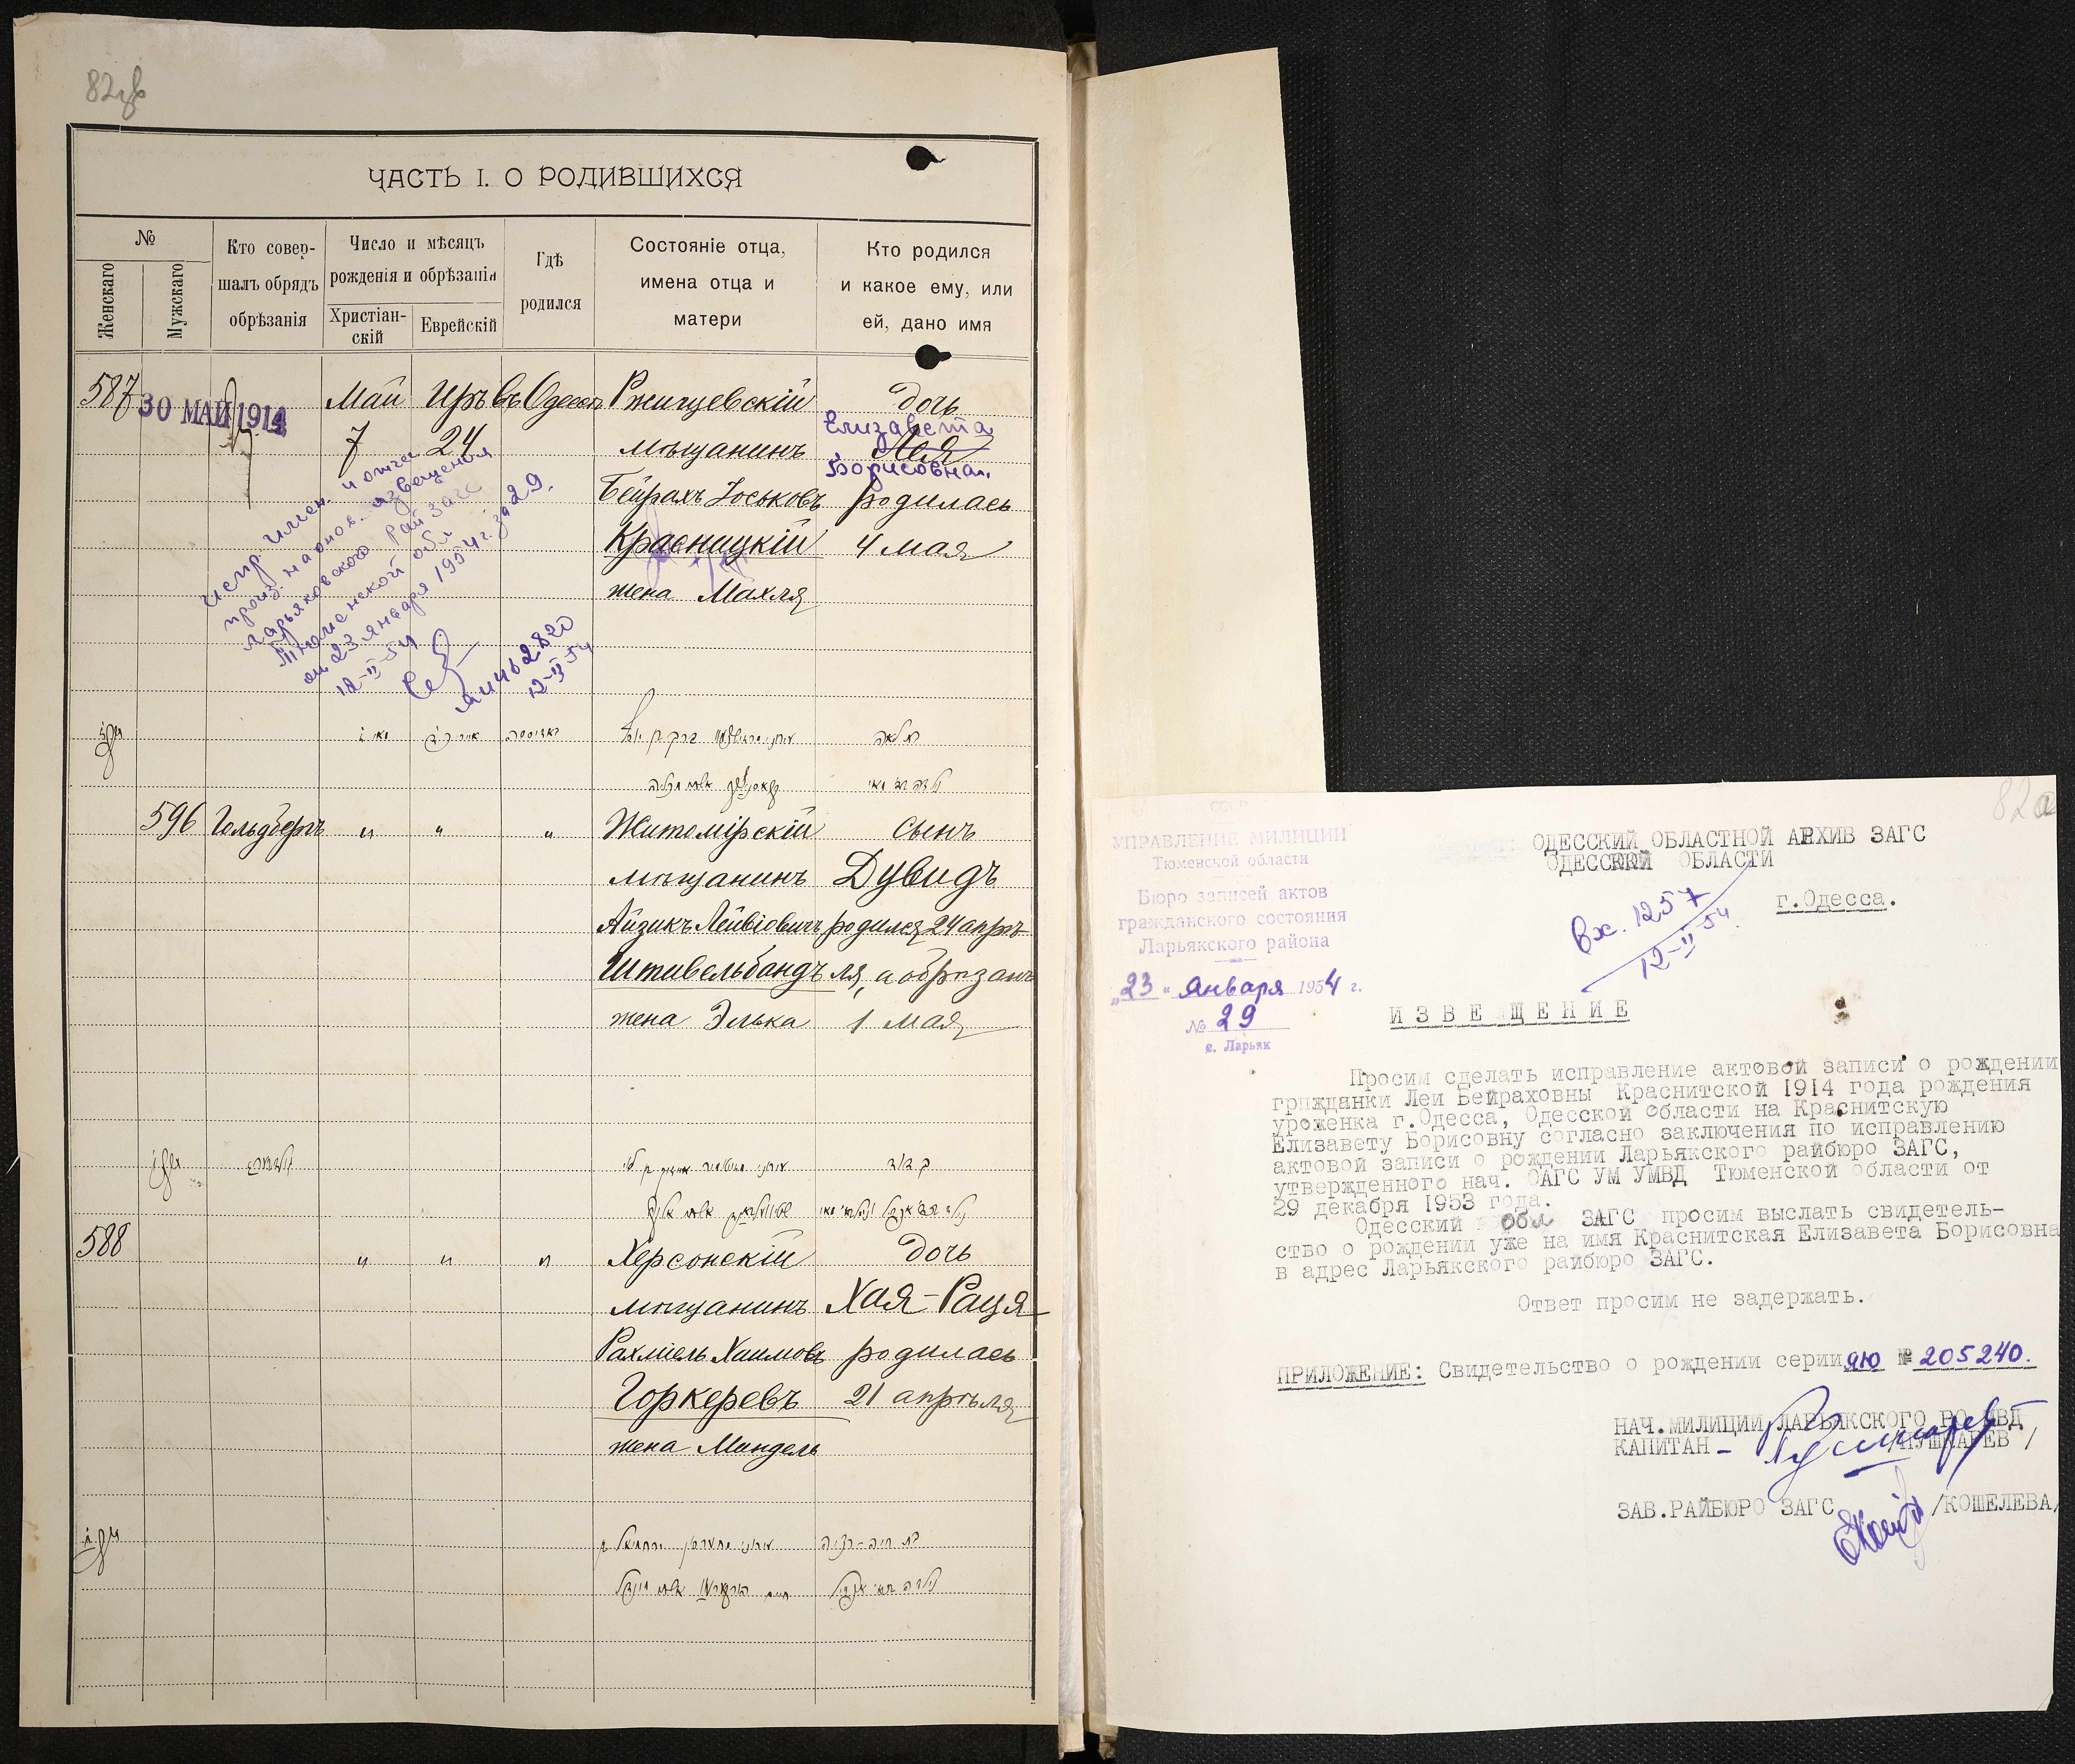 ЧАСТЬ I. О РОДИВШИХСЯ
№
Женскаго
Мужскаго
Кто совер-
шалъ обрядъ
обрѣзанія
Число и мѣсяцъ
рожденія и обрѣзанія
Христіан-
скій
Еврейскій
Гдѣ
родился
Состояніе отца,
имена отца и
матери
Кто родился
и какое ему, или
ей, дано имя
587
30 МАЙ 1914
Май Иръ въ Одессѣ Ржищевскій дочь
Елизавета
7 24 мѣщанинъ Лея
Борисовна.
Бейрахъ Іоськовъ родилась
Красницкій 4 мая
жена Махля
Испр. имен. и отче
произ. на основ. извещения
Ларьяковского РайЗагс
Тюменской обл
от 23 января 1954 г. за 29.
12-II-54
462820
12-II-54
596 Гольдбергъ " " " Житомірскій Сынъ
мѣщанинъ Дувидъ
Айзикъ Лейвіовичъ родился 24 апрѣ-
Штивельбандъ ля, а обрѣзанъ
жена Элька 1 мая
588 " " " Херсонскій дочь
мѣщанинъ Хая-Рація
Рахміель Хаимовъ родилась
Горкеревъ 21 апрѣля
жена Миндель
82а
СССР
УПРАВЛЕНИЕ МИЛИЦИИ
Тюменской области
Бюро записей актов
гражданского состояния
Ларьякского района
„23" Января 1954 г.
№ 29
с. Ларьяк
ОДЕССКИЙ ОБЛАСТНОЙ АРХИВ ЗАГС
ОДЕССКОЙ ОБЛАСТИ
г.Одесса.
Вх. 1257
12-II-54.
ИЗВЕЩЕНИЕ
Просим сделать исправление актовой записи о рождении
гражданки Леи Бейраховны Краснитской 1914 года рождения
уроженка г.Одесса, Одесской области на Краснитскую
Елизавету Борисовну согласно заключения по исправлению
актовой записи о рождении Ларьякского райбюро ЗАГС,
утвержденного нач. ОАГС УМ УМВД Тюменской области от
29 декабря 1953 года.
Одесский обл ЗАГС просим выслать свидетель-
ство о рождении уже на имя Краснитская Елизавета Борисовна
в адрес Ларьякского райбюро ЗАГС.
Ответ просим не задержать.
ПРИЛОЖЕНИЕ: Свидетельство о рождении серии ЯЮ № 205240.
НАЧ.МИЛИЦИИ ЛАРЬЯКСКОГО РО МВД
КАПИТАН- /ПУШКАРЕВ/
ЗАВ.РАЙБЮРО ЗАГС /КОШЕЛЕВА/